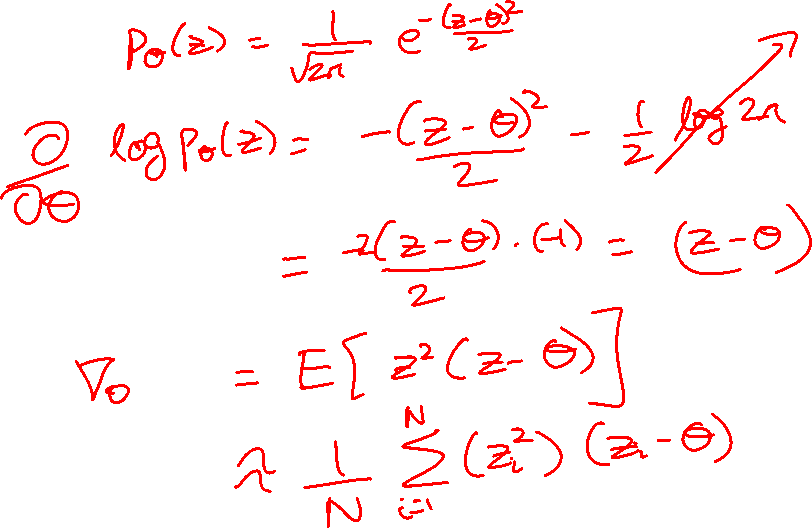 p_θ(z) = 1/√2π e^{-(z-θ)²/2}
∂/∂θ log p_θ(z) = -(z-θ)²/2 - 1/2 log 2π
= -2(z-θ)·(-1)/2 = (z-θ)
∇_θ = E[z²(z-θ)]
≈ 1/N ∑_{i=1}^{N} (z_i²)(z_i-θ)